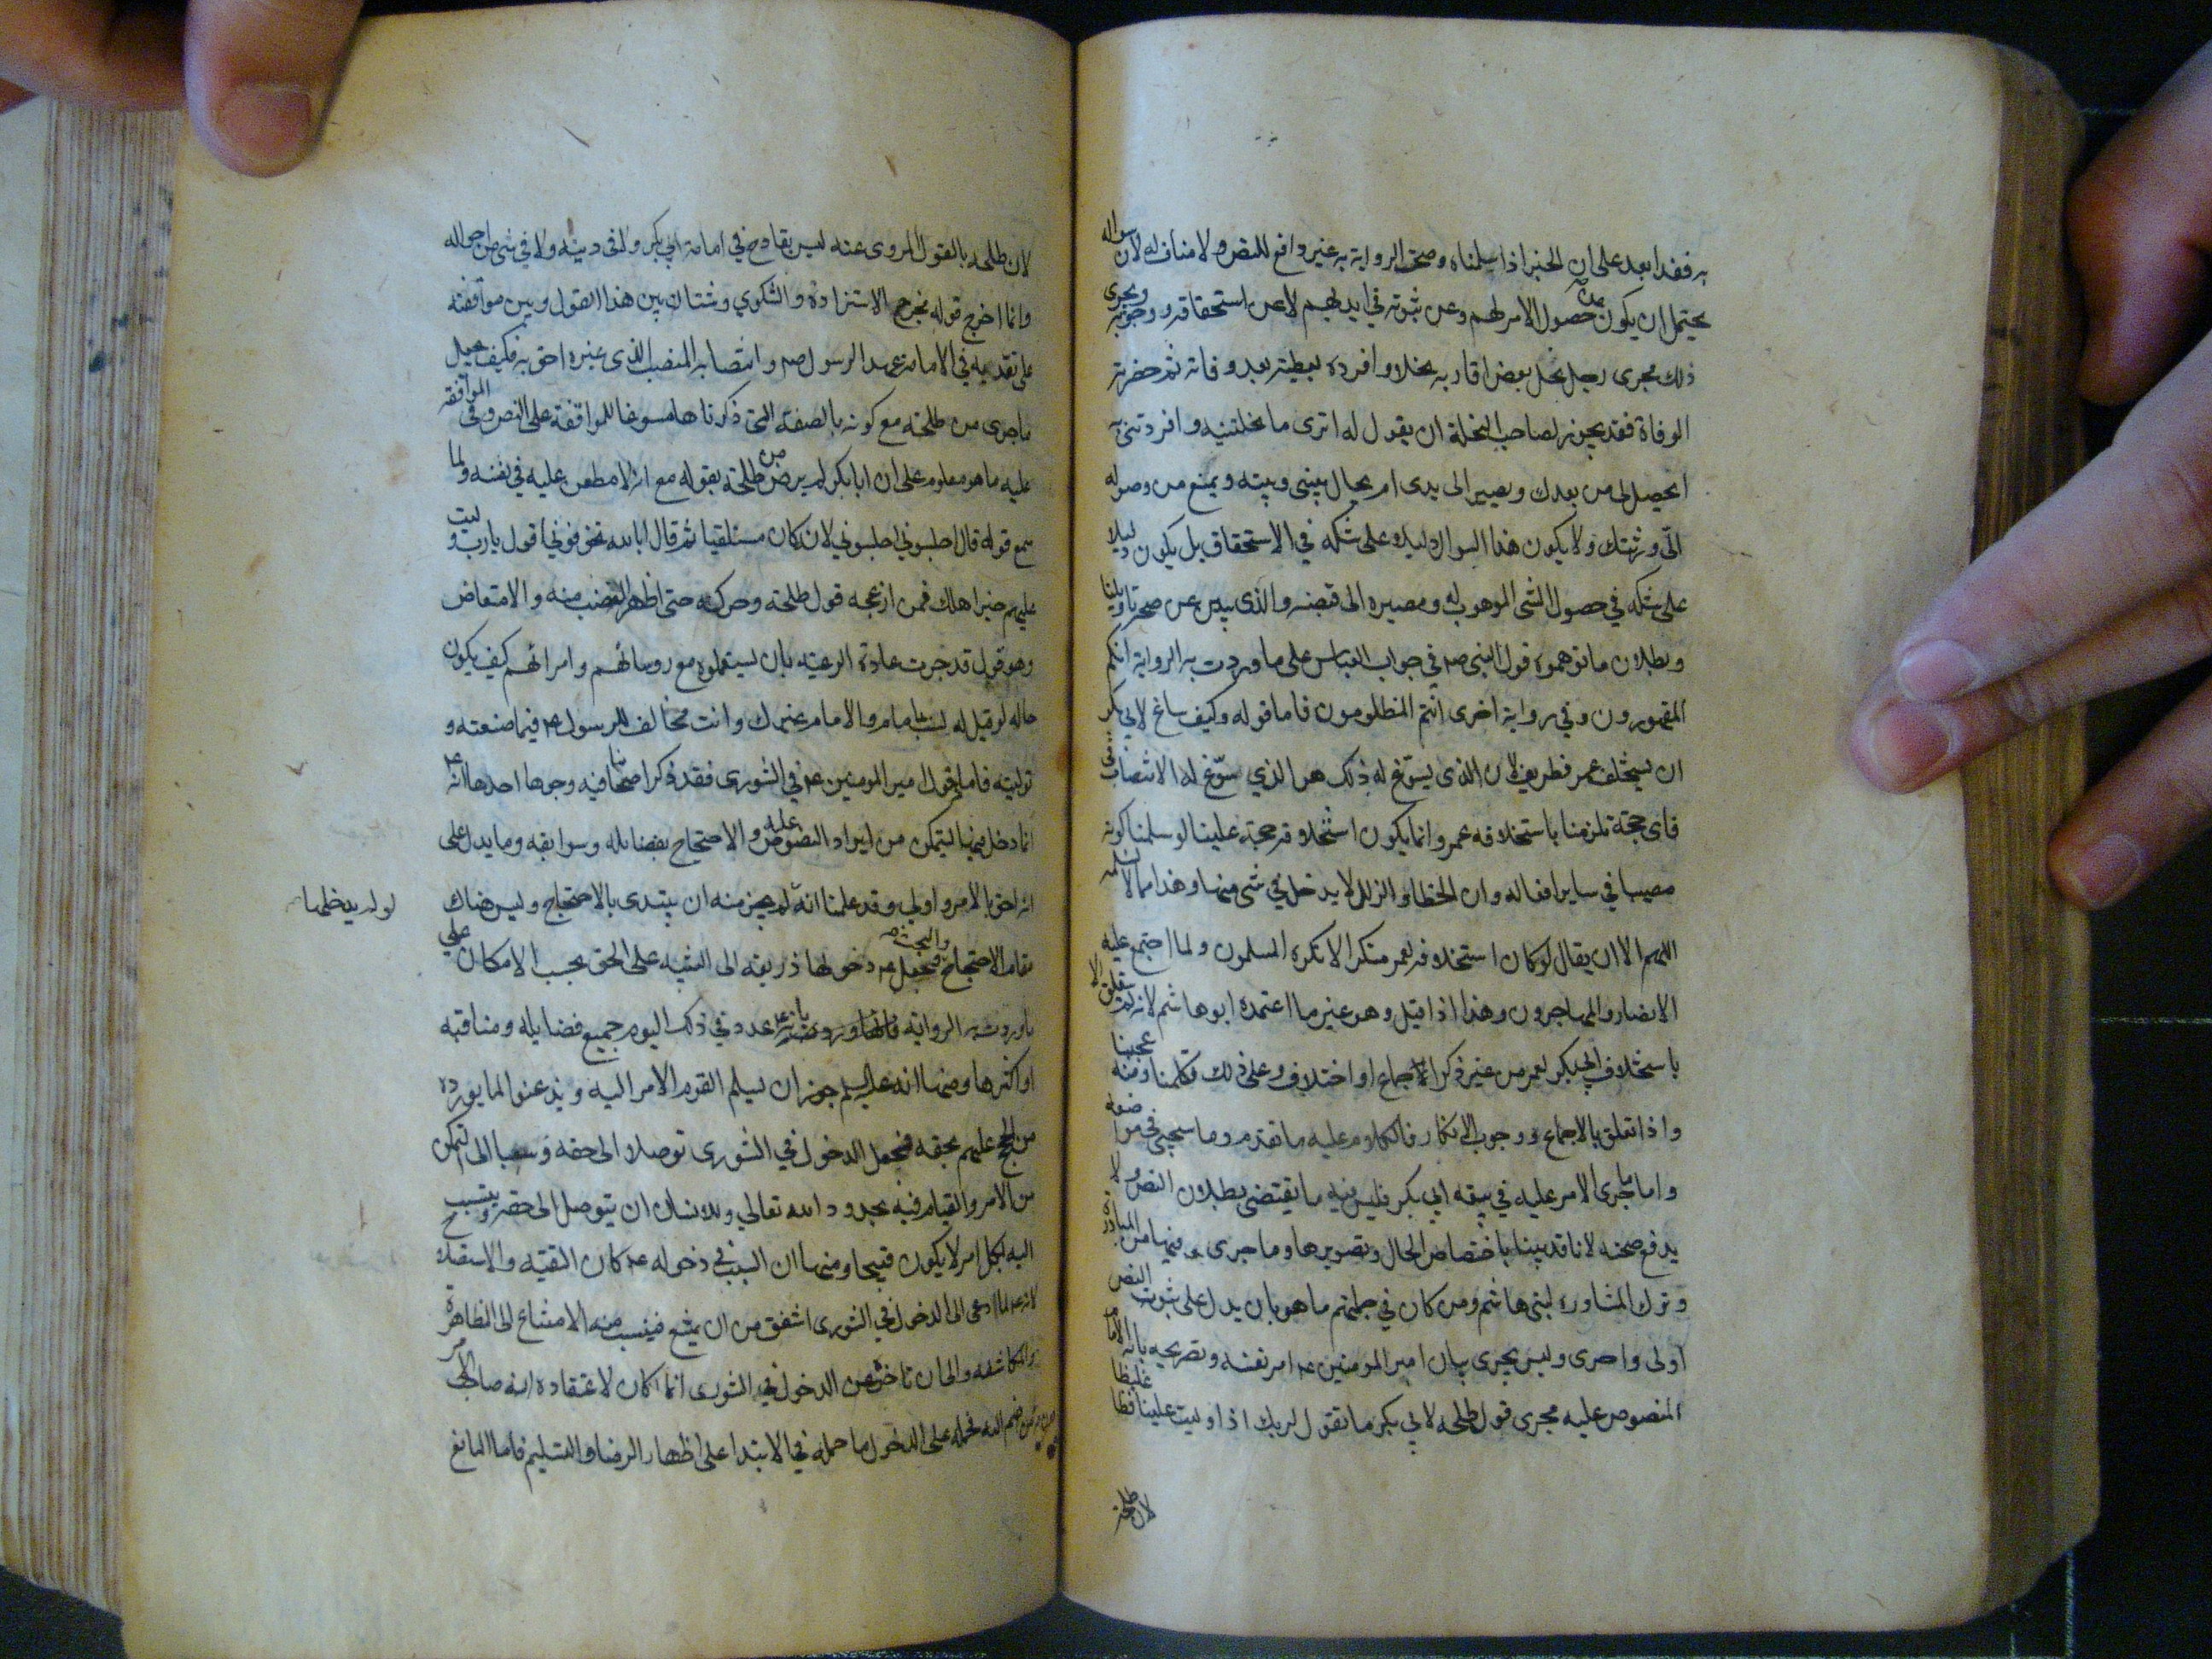 به فقد ابعد على ان الخبر اذا سلمناه وصحت الرواية به غير دافع للنص ولا مناف له لان سواله
يحتمل ان يكون عن حصول الامر لهم وعن ثبوته في ايديهم لا عن استحقاقه ووجوبه ويجرى
ذلك مجرى رجل نحل بعض اقاربه نحلا وافرده بعطية بعد وفاته ثم حضرته
الوفاة فقد يجوز لصاحب النحلة ان يقول له اترى ما نحلتنيه وافردتنى به
ايحصل لى من بعدك ويصير الى يدى ام يحال بينى وبينه ويمنع من وصوله
الىّ ورثتك ولا يكون هذا السوال دليلا على شكه في الاستحقاق بل يكون دليلا
على شكه في حصول الشى الموهوب له ومصيره الى قبضه والذى يبين عن صحة تاويلنا
وبطلان ما توهموه قول النبى صم في جواب العباس على ما وردت به الرواية انكم
المقهورون وفي رواية اخرى انتم المظلومون فاما قوله وكيف ساغ لابي بكر
ان يستخلف عمر فطريف لان الذى يسوّغ له ذلك هو الذي سوّغ له الانتصاب
فاى حجة تلزمنا باستخلافه عمر وانما يكون استخلافه حجة علينا لو سلمنا كونه
مصيبا في ساير افعاله وان الخطا والزلل لا يدخل في شى منها وهذا مما لا نسلمه
اللهم الا ان يقال لو كان استخلافه لعمر منكرا لانكره المسلمون ولما اجتمع عليه
الانصار والمهاجرون وهذا اذا قيل وهو غير ما اعتمده ابو هاشم لانه
باستخلاف ابي بكر لعمر من غير ذكر الاجماع او اختلاف وعلى ذلك تكلمنا ومنه عجبنا
واذا تعلق بالاجماع ووجوب الانكار فالكلام عليه ما تقدم وما سيجيى في مواضعه
واما ما جرى الامر عليه في بيعه ابي بكر فليس فيه ما يقتضى بطلان النص ولا
يدفع صحته لانا قد بينا باختصاص الحال وتصويرها وما جرى فيها من المبادرة
وترك المشاوره لبنى هاشم ومن كان في جملتهم ما هو بان يدل على ثبوت النص
اولى واحرى وليس يجرى بيان امير المومنين عم امر نفسه وتصريحه بانه الامام
المنصوص عليه مجرى قول طلحه لابي بكر ما تقول لربك اذا وليت علينا فظا غليظا
لان طلحة
لان طلحه بالقول المروى عنه ليس بقادح في امامة ابي بكر ولا فى دينه ولا في شى من احواله
وانما اخرج قوله مخرج الاستزادة والشكوي وشتان بين هذا القول وبين موافقته
على تقدمه في الامامة عهد الرسول صم وانتصابه المنصب الذى غيره احق به فكيف يجعل
ما جرى من طلحه مع كونه بالصفة التى ذكرناها مسوغا للموافقة على النص وفى الموافقة
عليه ما هو معلوم على ان ابا بكر لم يرض من طلحة بقوله مع انه لا مطعن عليه في نفسه ولما
سمع قوله قال اجلسوني اجلسوني لانه كان مستلقيا ثم قال ابالله تخوفونى اقول يارب وليت
عليهم خير اهلك فمن ازعجه قول طلحة وحركه حتى اظهر الغضب منه والامتعاض
وهو قول قد جرت عادة الرعية بان يستعملوه مع روسائهم وامرائهم كيف يكون
حاله لو قيل له لست بامام والامام غيرك وانت مخالف للرسول عم فيما صنعته و
توليته فاما دخول امير المومنين عم في الشورى فقد ذكر اصحابنا فيه وجوها احدها انه عم
انما دخل فيها ليتمكن من ايراد النصوص عليه والاحتجاج بفضايله وسوابقه وما يدل على
انه احق بالامر واولى وقد علمنا انه لم يجز منه ان يبتدى بالاحتجاج وليس هناك
لو لم يدخلها
مقام الاحتجاج والبحث فجعل عم دخولها ذريعه الى التنبيه على الحق بحسب الامكان على
ما وردت به الرواية بانه عم عدد في ذلك اليوم جميع فضايله ومناقبه
او اكثرها ومنها انه عليه السلم جوز ان يسلم القوم الامر اليه ويذعنوا لما يورده
من الحج عليهم بحقه فجعل الدخول في الشورى توصلا الى حقه وسببا الى التمكن
من الامر والقيام فيه بحدود الله تعالي وللانسان ان يتوصل الى حقه ويتسبب
اليه بكل امر لا يكون قبيحا ومنها ان السبب في دخوله عم كان التقيه والاستصلاح
لانه عم لما دعى الى الدخول في الشورى اشفق من ان يمتنع فينسب منه الامتناع الى المظاهرة
والمكاشفه والى ان تاخره عن الدخول في الشورى انما كان لاعتقاده انه صاحب الامر
دون من ضم اليه فحمله على الدخول ما حمله في الابتدا على اظهار الرضا والتسليم فاما المانع